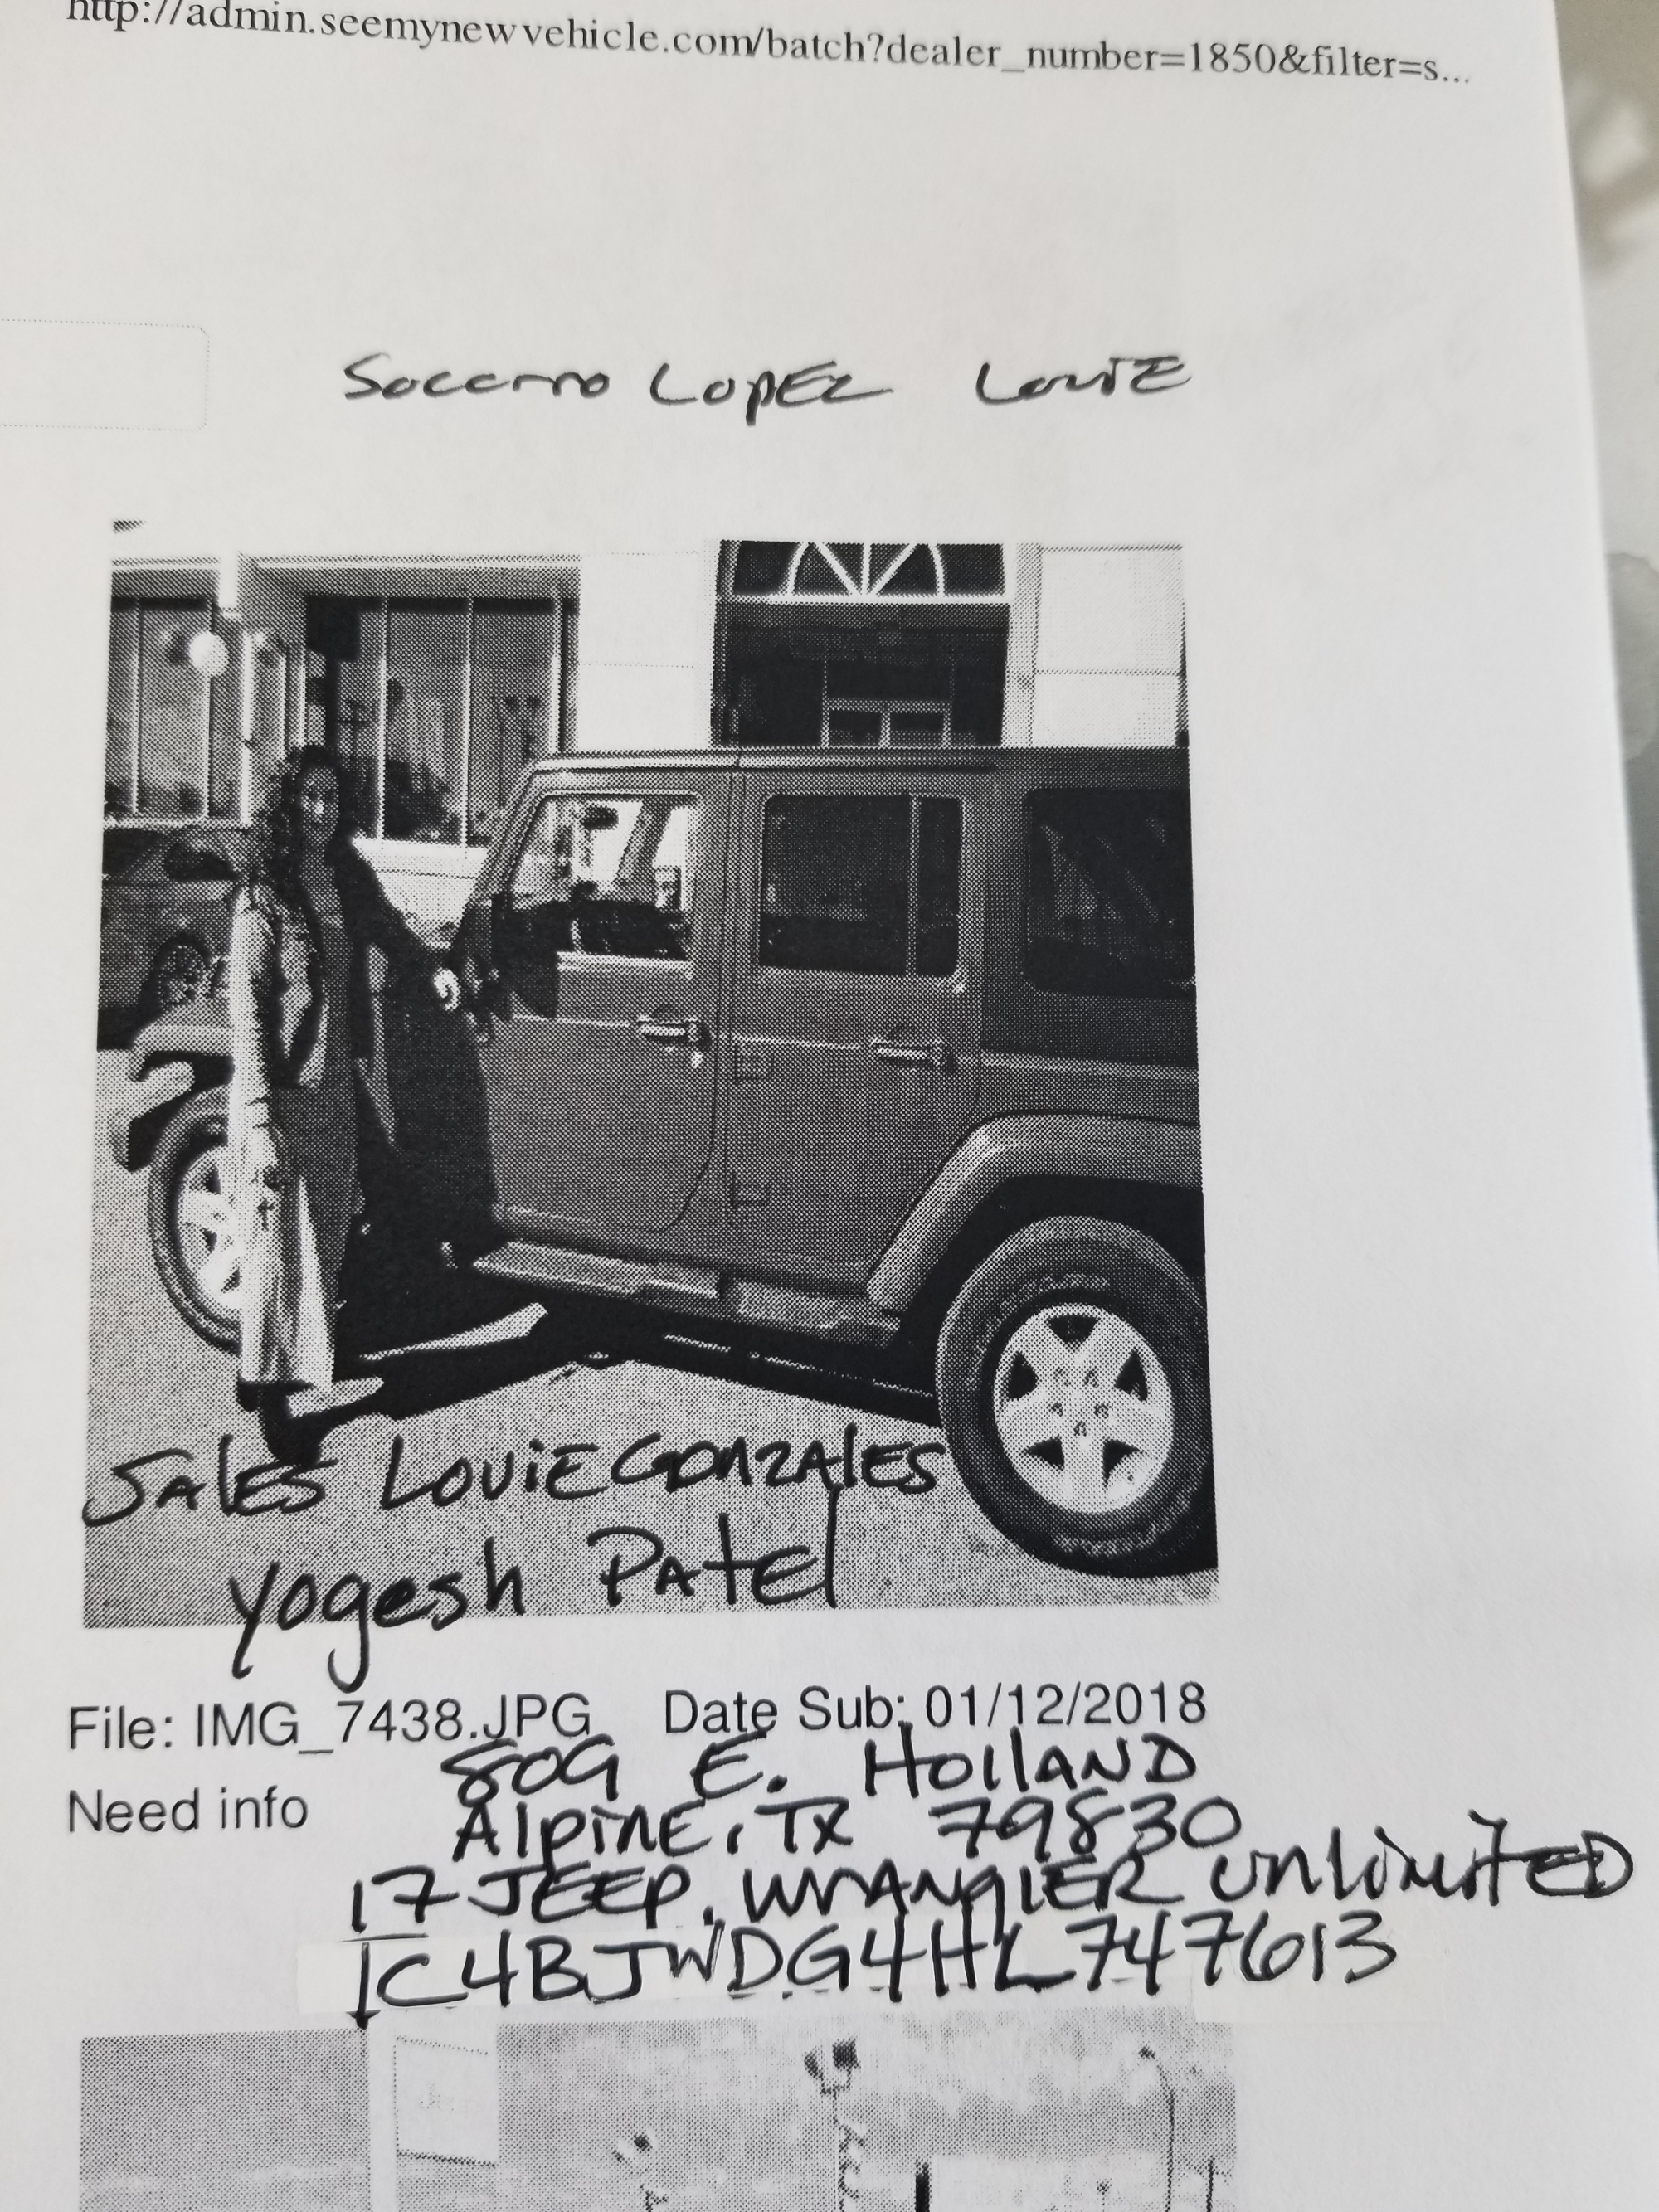 http://admin.seemynewvehicle.com/batch?dealer_number=1850&filter=s...
Socorro LOPEZ LOUIE
SALES LOUIE GONZALES
Yogesh PAtEl
File: IMG_7438.JPG Date Sub: 01/12/2018
809 E. HOllAND
Need info
AlpiNE, TX 79830
17 JEEP, WRANglER UNlimitED
1C4BJWDG4HL747613